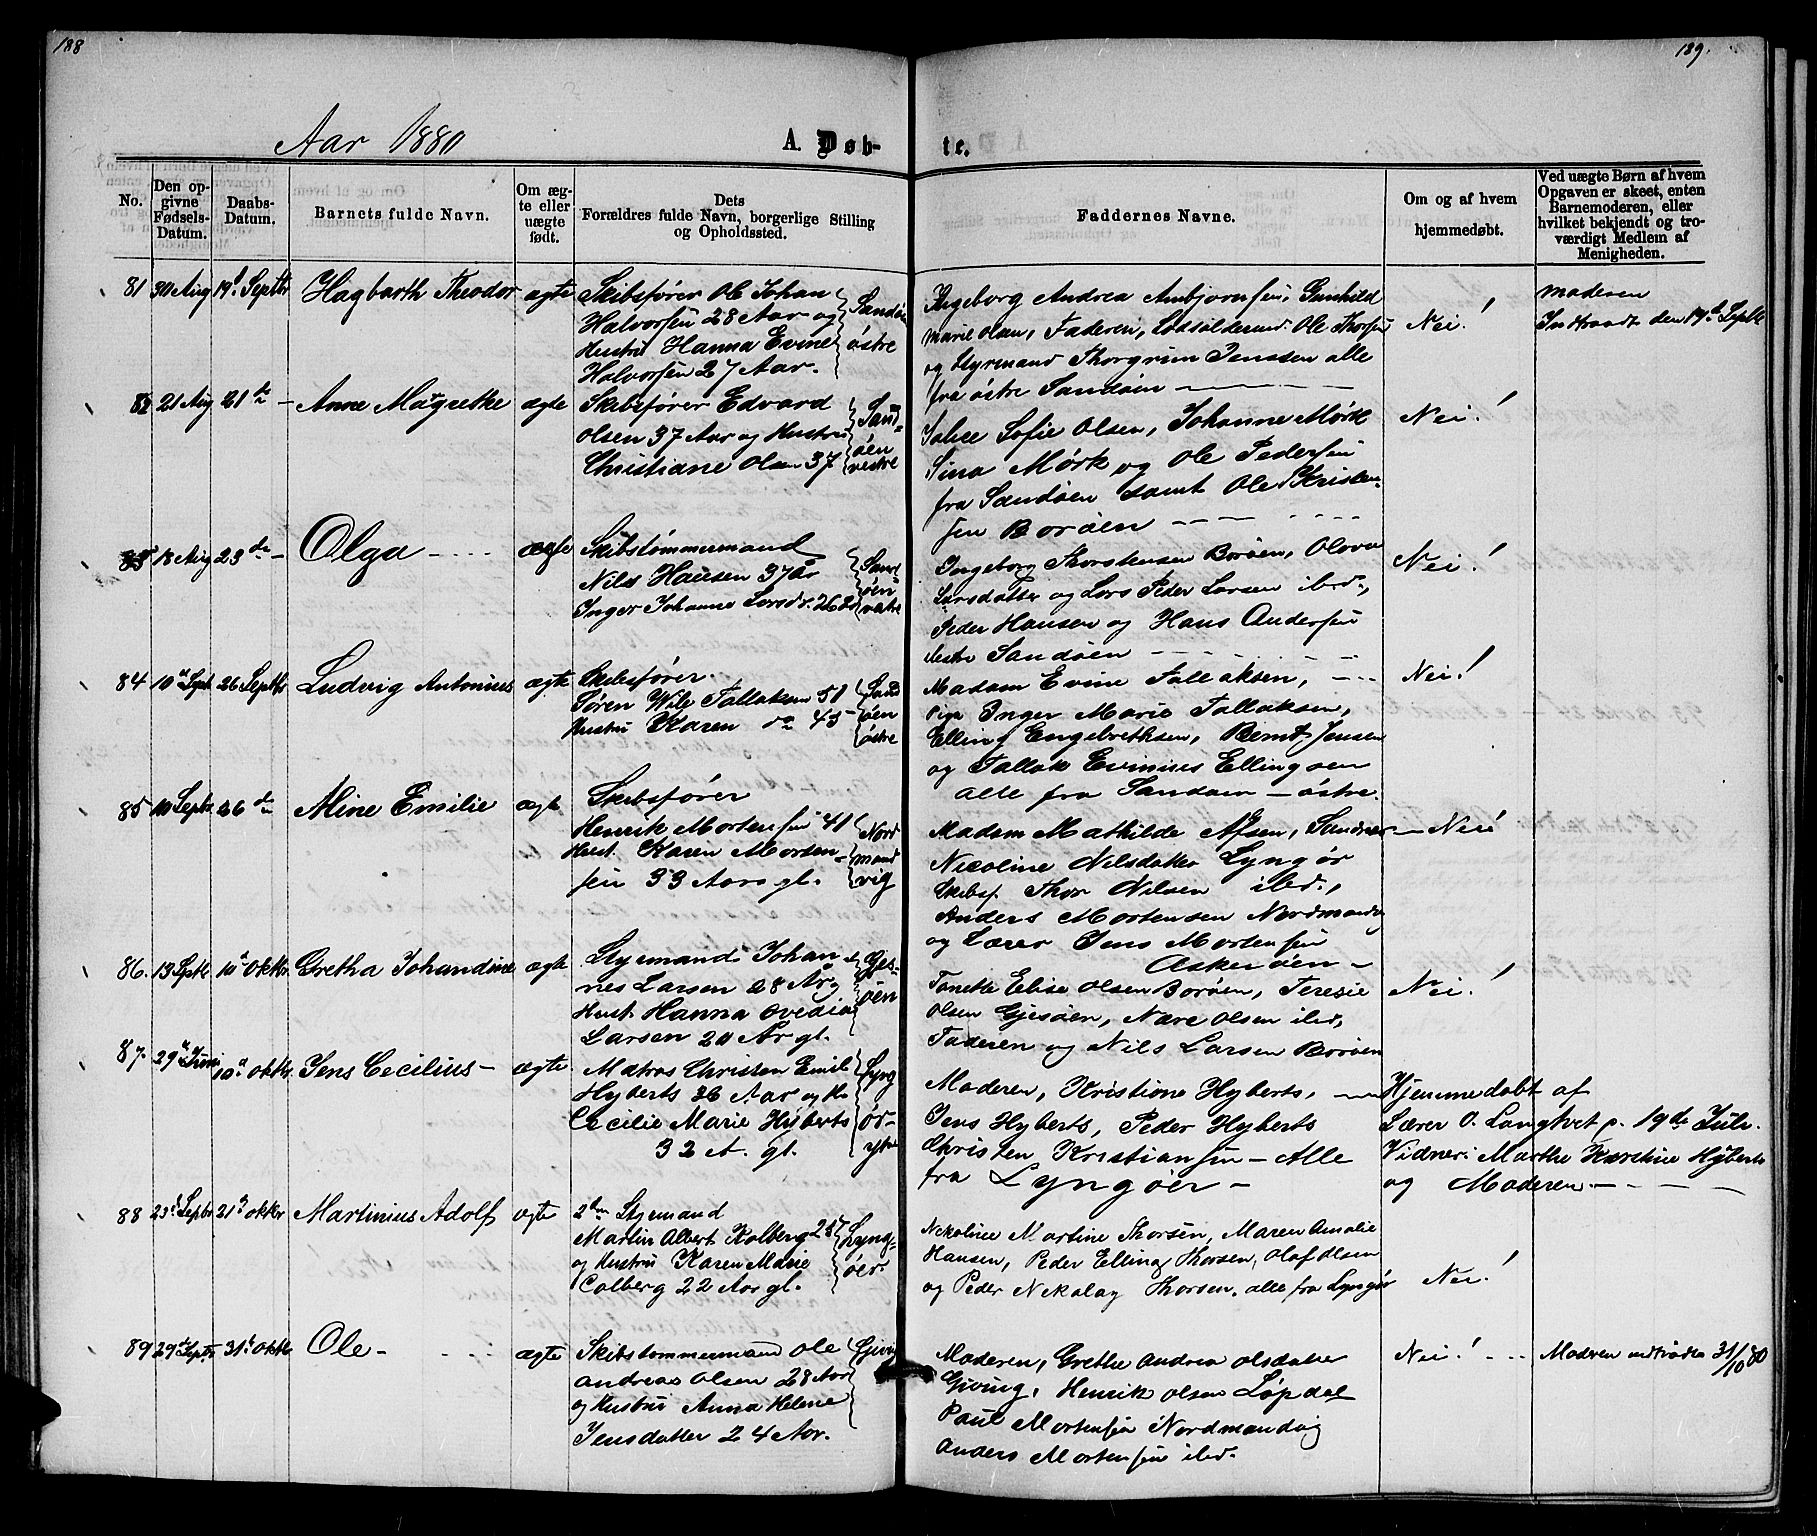 188
189.
Aar 1880
A. Døb-
te.
No.
Den op-
givne
Fødsels-
Datum.
Daabs-
Datum.
Barnets fulde Navn.
Om æg-
te eller
uægte
født.
Dets
Forældres fulde Navn, borgerlige Stilling
og Opholdssted.
Faddernes Navne.
Om og af hvem
hjemmedøbt.
Ved uægte Børn af hvem
Opgaven er skeet, enten
Barnemoderen, eller
hvilket bekjendt og tro-
værdigt Medlem af
Menigheden.
81 30 Aug 19d Septbr Hagbarth Theodor ægte
Skibsfører Ole Johan
Halvorsen 28 Aar og
Hustru Hanna Evine
Halvorsen 27 Aar.
Sandøe
østre
Ingeborg Andrea Ambjørnsen, Gunhild
Marie Olsen, Faderen, Ole Thorsen
og Styrmand Thorgrim Jenssen alle
fra østre Sandøen
Nei!
Moderen
Indtraadt den 19d Septbr
82 21 Aug 21 de - Anne Magrethe ægte
Skibsfører Edvard
Olsen 37 Aar og Hustru
Christiane Olsen 37
Sand=
øen
vestre
Sofie Olsen, Johanne Mørk
Sina Mørk og Ole Pedersen
fra Sandøen samt Ole Kristen-
sen Borøen
Nei!
83 18 Aug 23 de - Olga ægte
Skibstømmermand
Nils Hansen 37 år
Inger Johanne Larsdr. 26
Sand
øen
vestre
Ingeborg Thorstensen Borøen, Olova
Larsdatter og Lars Peder Larsen ibid.,
Peder Hansen og Hans Andersen
Vestre Sandøen
Nei!
84 10d Sept 26 Septbr Ludvig Antonius ægte
Skibsfører
Søren Wile Tallaksen 51
Hustru Karen do 45 -
Sand
øen
østre
Madam Evine Tallaksen,
Pige Inger Marie Tallaksen,
Elling Engebrethsen, Bernt Jensen
og Tallak Evinius Ellingsen
alle fra Sandøen - østre.
Nei!
85 10 Septbr 26 de Aline Emilie ægte
Skibsfører
Henrik Mortensen 41
Hust. Karen Morten-
sen 33 Aars gl.
Nord
mand
vig
Madam Mathilde
Nicoline Nilsdatter Lyngør
Skibsf. Thor Nilsen ibd.,
Anders Mortensen Nordmandv
og Lærer Jens Mortensen
Askerøen -
- Nei!
86. 13 Septbr 10d Oktbr Gretha Johandine ægte
Styrmand Johan-
nes Larsen 28 År og
Hust. Hanna Ovedia
Larsen 20 Ar gl.
Gjes-
øen
Tonette Elise Olsen Borøen, Teresie
Olsen Gjesøen, Nære Olsen ibd,
Faderen og Nils Larsen Borøen
Nei!
87. 29d Juni 10d Oktbr Jens Cecilius - ægte
Matros Christen Emil
Hyberts 36 Aar og H.
Cecilie Marie Hyberts
32 A. gl.
Lyng
ør-
ytre
Moderen, Kristiane Hyberts,
Jens Hyberts, Peder Hyberts
Christen Kristiansen - Alle
fra Lyngøer -
Hjemmedøbt af
Lærer O. Langtvet p. 19de Juli.
Vidner: Marthe Karstine Hyberts
og Moderen -
88 23d Septbr 21d Oktbr Martinius Adolf ægte
2den Styrmand
Martin Albert Kolberg 25
og Hustru Karen Marie
Colberg 22 Aar gl.
Lyng=
øer
Nekoline Martine Thorsen, Maren Amalie
Hansen, Peder Elling Thorsen, Olaf Olsen
og Peder Nekolay Thorsen, alle fra Lyngør
Nei!
89 29d Septr 31d Oktbr Ole - ægte
Skibstømmermand Ole
Andreas Olsen 28 Aar
og Hustru Anna Helene
Jensdatter 24 Aar.
Moderen, Grethe Andrea Olsdatter
Giving, Henrik Olsen Løpdal
Paul Mortensen Nordmandvig
Anders Mortensen ibid.
Nei!
Modren indtrådte 31/10 80